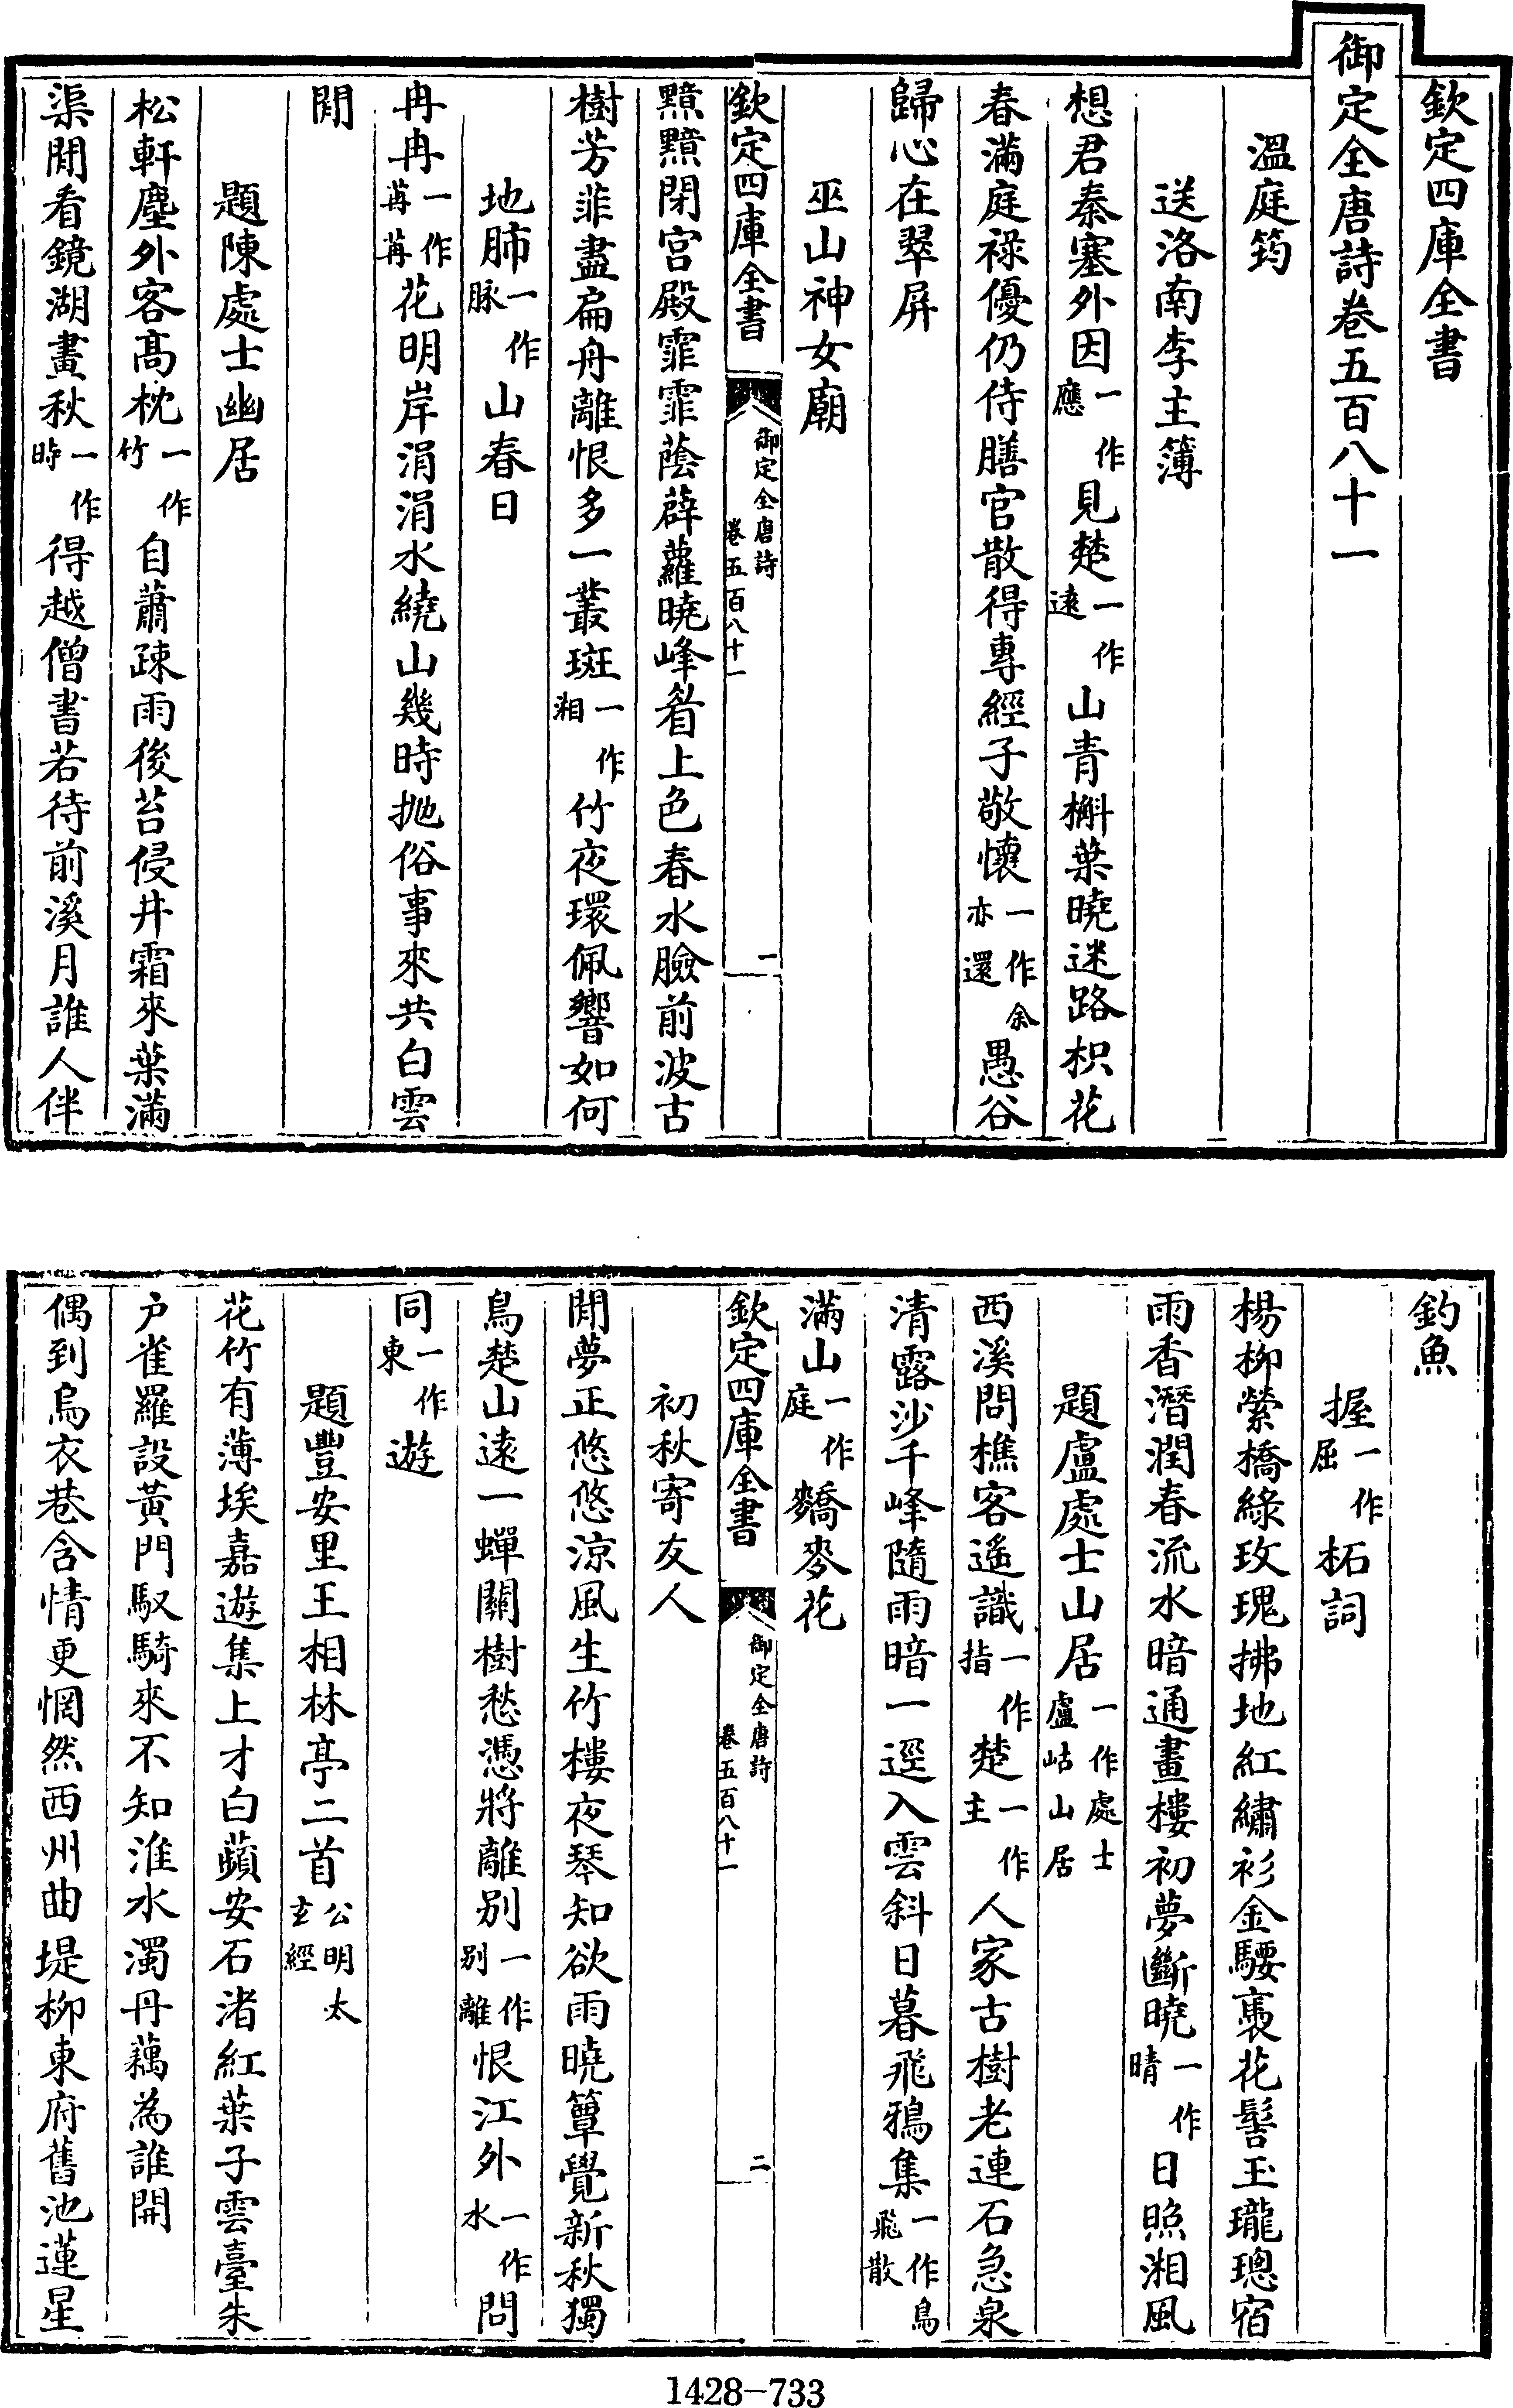 欽定四庫全書
御定全唐詩卷五百八十一
溫庭筠
送洛南李主簿
想君秦塞外因一作應見楚一作遠山青槲葉曉迷路枳花
春滿庭祿優仍侍膳官散得專經子敬懷一作余亦還愚谷
歸心在翠屏
巫山神女廟
欽定四庫全書 御定全唐詩卷五百八十一 一
黯黯閉宮殿霏霏蔭薜蘿曉峰眉上色春水臉前波古
樹芳菲盡扁舟離恨多一叢斑一作湘竹夜環佩響如何
地肺一作脉山春日
冉冉一作苒苒花明岸涓涓水繞山幾時拋俗事來共白雲
閒
題陳處士幽居
松軒塵外客高枕一作竹自蕭疎雨後苔侵井霜來葉滿
渠閒看鏡湖畫秋一作時得越僧書若待前溪月誰人伴
釣魚
握一作屈柘詞
楊柳縈橋綠玫瑰拂地紅繡衫金騕褭花髻玉瓏璁宿
雨香潛潤春流水暗通畫樓初夢斷曉一作晴日照湘風
題盧處士山居一作處士盧岵山居
西溪問樵客遥識一作指楚一作主人家古樹老連石急泉
清露沙千峰隨雨暗一逕入雲斜日暮飛鴉集一作鳥飛散
滿山一作庭蕎麥花
欽定四庫全書 御定全唐詩卷五百八十一 二
初秋寄友人
閒夢正悠悠涼風生竹樓夜琴知欲雨曉簟覺新秋獨
鳥楚山遠一蟬關樹愁憑將離别一作别離恨江外一作水問
同一作東遊
題豐安里王相林亭二首公明太玄經
花竹有薄埃嘉遊集上才白蘋安石渚紅葉子雲臺朱
户雀羅設黃門馭騎來不知淮水濁丹藕為誰開
偶到烏衣巷含情更惘然西州曲堤柳東府舊池蓮星
1428-733